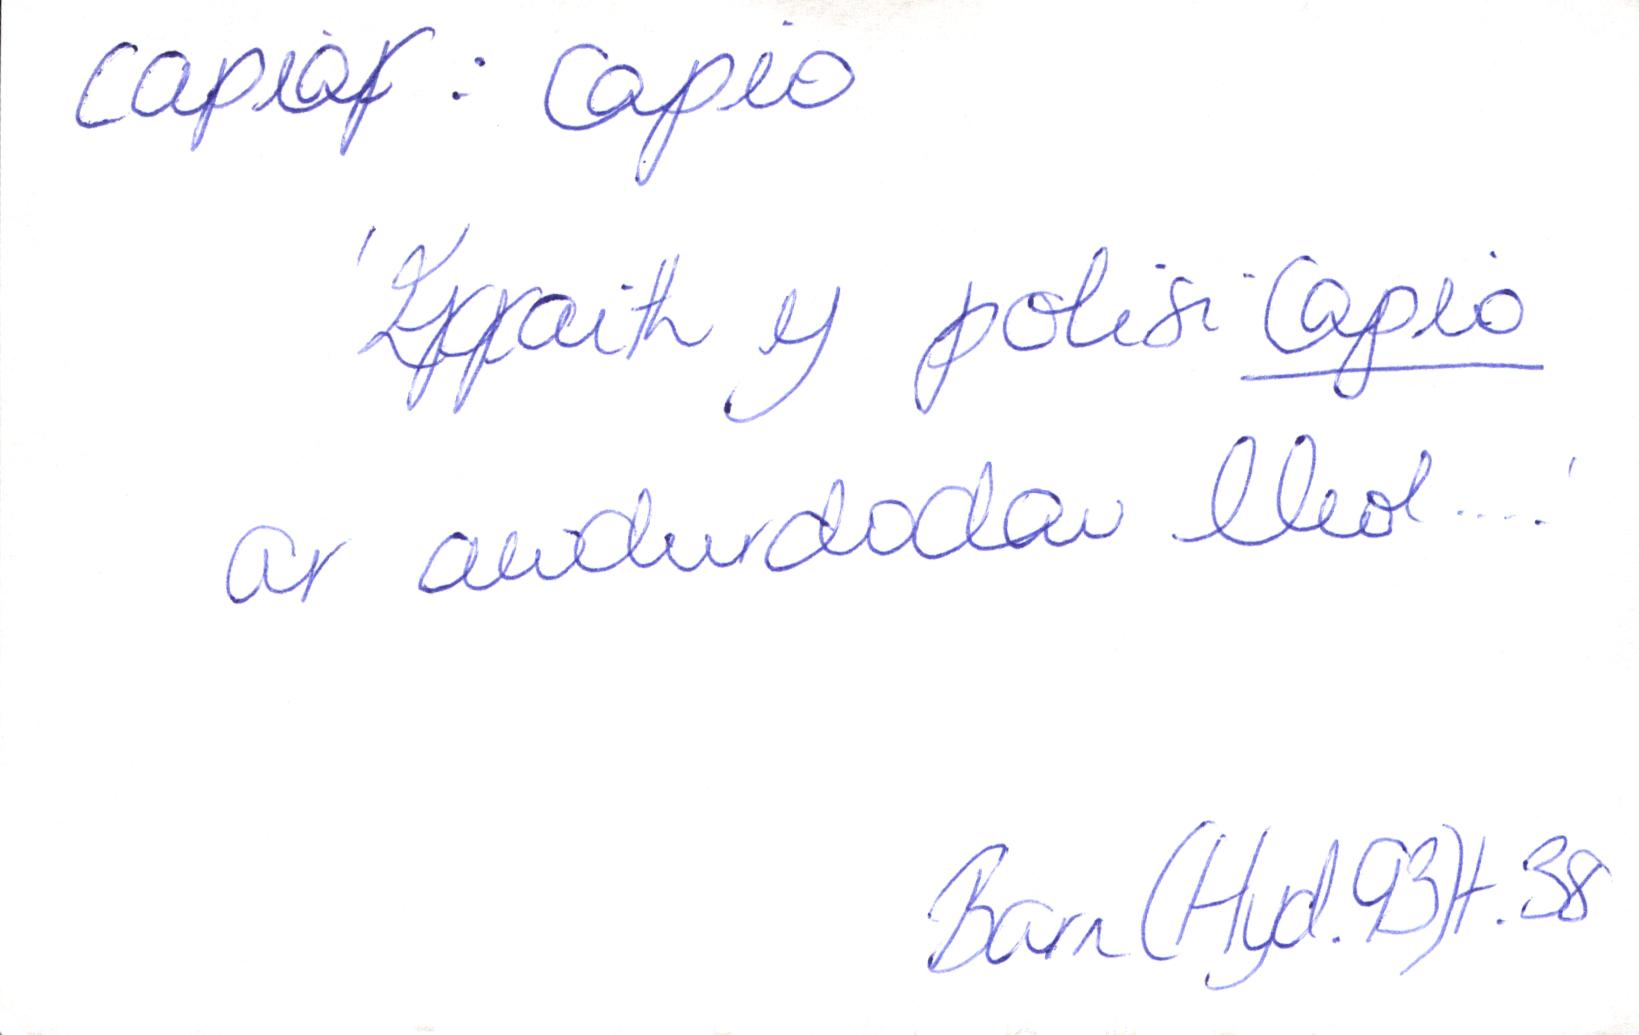 capiaf : capio
'Effaith y polisi capio
ar awdurdodau lleol ....'
Barn (Hyd. 93) t. 38